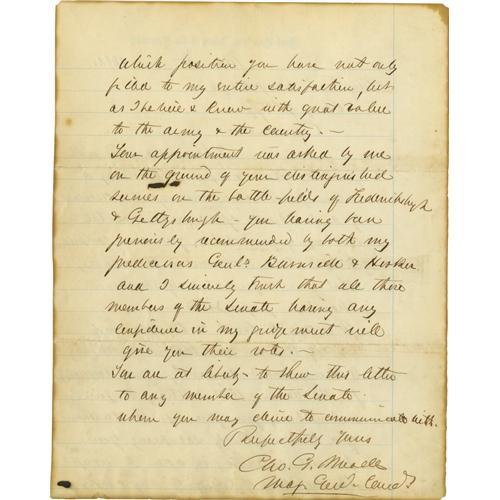 which position you have not only
filled to my entire satisfaction, but
as I believe & know with great value
to the army & the country. —
Your appointment was asked by me
on the ground of your distinguished
services on the battle-fields of Fredericksburgh
& Gettysburgh - you having been
previously recommended by both my
predecessors Genls Burnside & Hooker
and I sincerely trust that all those
members of the Senate having any
confidence in my judgement will
give you their votes. —
You are at liberty to show this letter
to any member of the Senate
whom you may desire to communicate with.
Respectfully Yours
Geo. G. Meade
Maj. Genl. Comdg